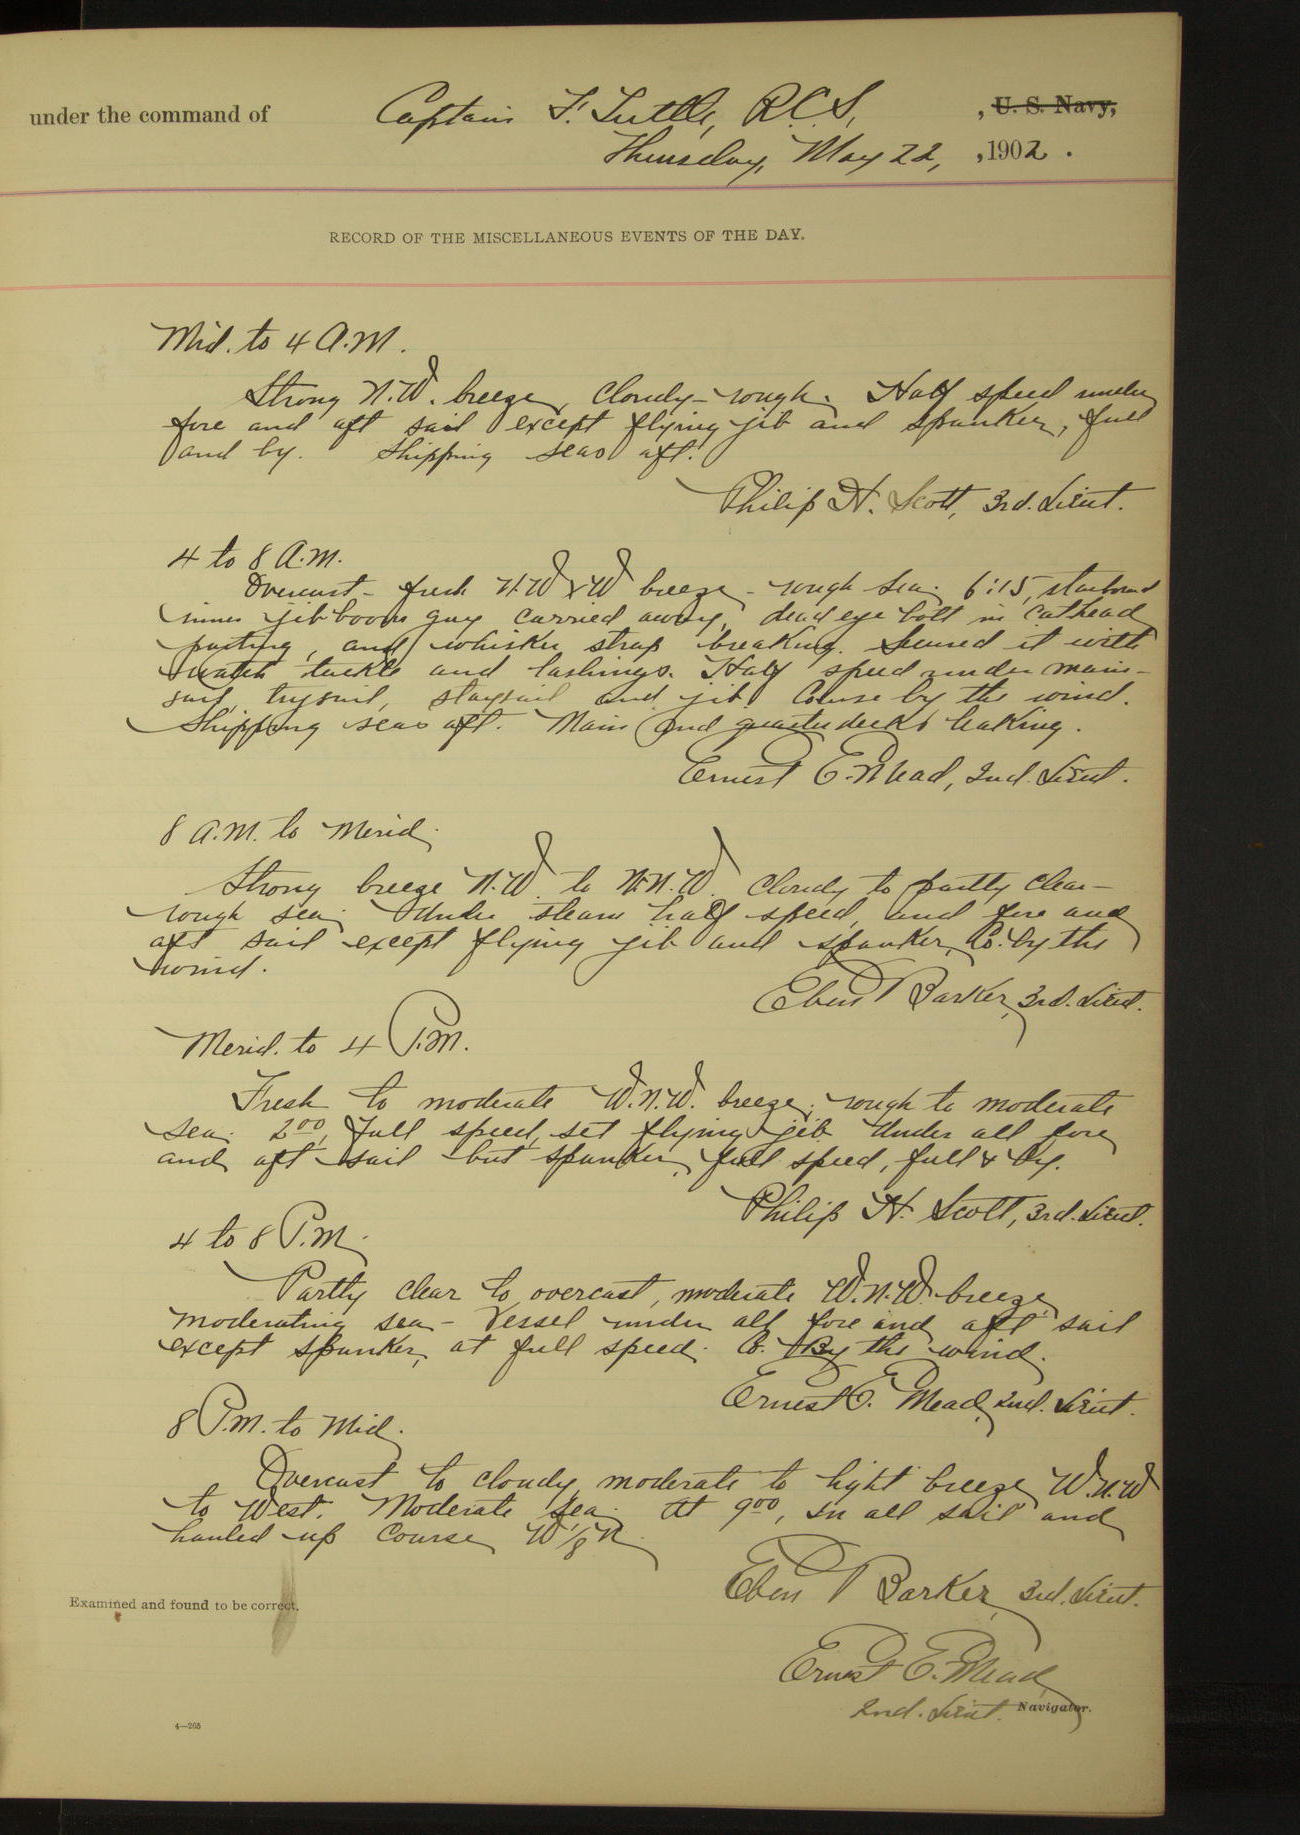 under the command of Captain F. Tuttle, R.C.S. , U. S. Navy,
Thursday, May 22, , 1902 .
RECORD OF THE MISCELLANEOUS EVENTS OF THE DAY.
Mid. to 4 A.M.
Strong N.W. breeze, cloudy - rough. Half speed under
fore and aft sail except flying jib and spanker, full
and by. Shipping seas aft.
Philip H. Scott, 3rd. Lieut.
4 to 8 A.M.
Overcast - fresh N.W x W breeze - rough sea. 6:15, starboard
inner jib boom guy carried away, dead eye bolt in cathead
parting, and whisker strap breaking. Secured it with
watch tackle and lashings. Half speed under main-
sail, trysail, staysail and jib. Course by the wind.
Shipping seas aft. Main and quarter decks leaking.
Ernest E. Mead, 2nd. Lieut.
8 A.M. to Merid.
Strong breeze N.W. to N.N.W. Cloudy to partly clear -
rough sea. Under steam half speed, and fore and
aft sail except flying jib and spanker, Co. by the
wind.
Eben Barker, 3rd. Lieut.
Merid. to 4 P.M.
Fresh to moderate W.N.W. breeze; rough to moderate
sea. 2 00, Full speed, set flying jib. Under all fore
and aft sail but spanker, full speed, full & by.
Philip H. Scott, 3rd. Lieut.
4 to 8 P.M.
Partly clear to overcast, moderate W.N.W. breeze,
moderating sea - Vessel under all fore and aft sail
except spanker, at full speed. Co. By the wind.
Ernest E. Mead, 2nd. Lieut.
8 P.M. to Mid.
Overcast to cloudy, moderate to light breeze, W.N.W
to West. Moderate sea. At 9 00, in all sail and
hauled up course W 1/8 N
Eben Barker, 3rd. Lieut.
Examined and found to be correct.
Ernest E. Mead,
2nd. Lieut. Navigator.
4—265